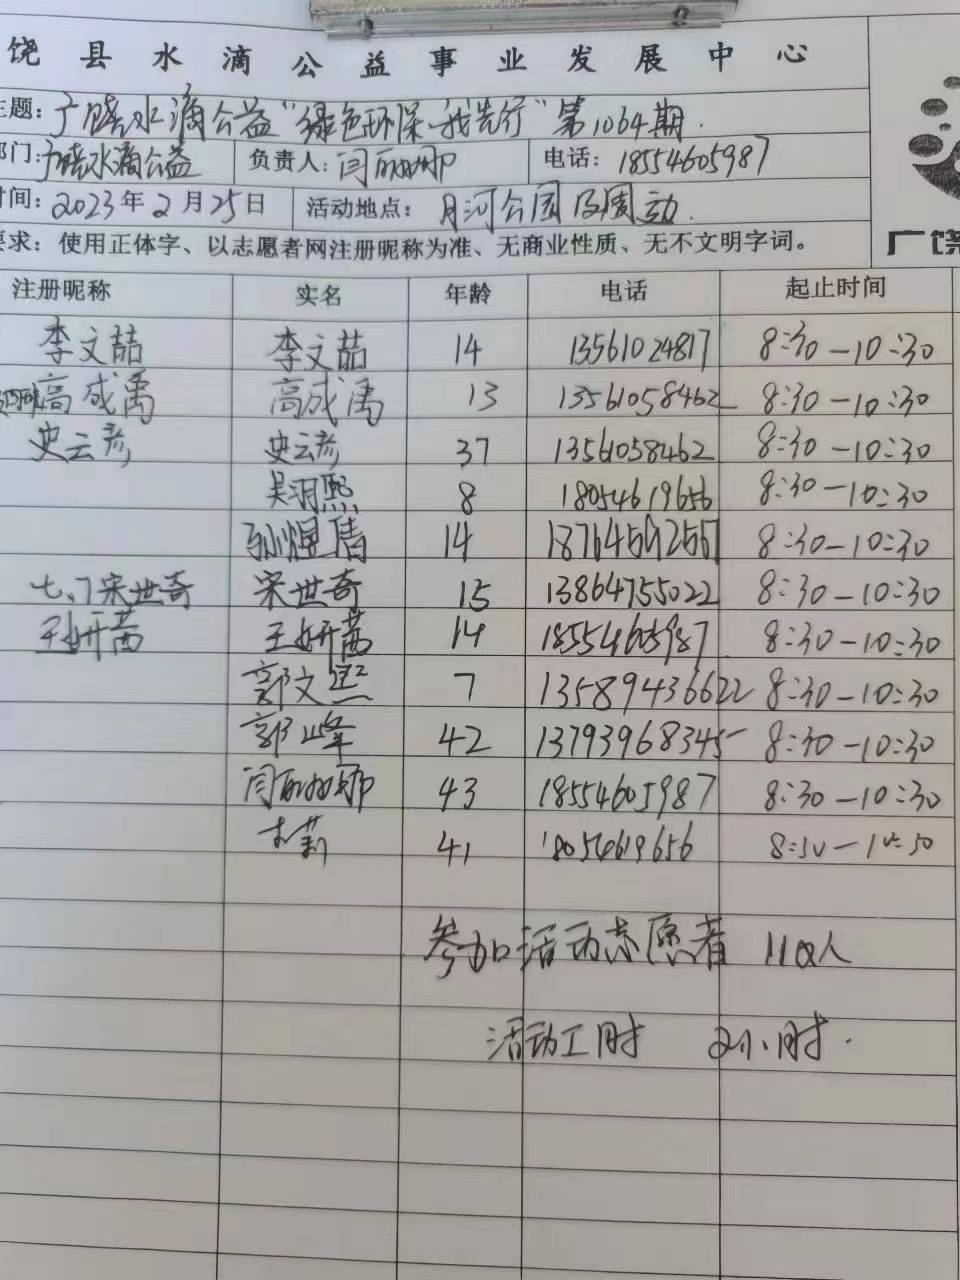 饶县水滴公益事业发展中心
主题：广饶水滴公益“绿色环保我先行”第1064期.
部门：广饶水滴公益 负责人：闫丽娜 电话：18554605987
时间：2023年2月25日 活动地点：月河公园及周边.
要求：使用正体字、以志愿者网注册昵称为准、无商业性质、无不文明字词。
广饶
注册昵称 实名 年龄 电话 起止时间
李文喆 李文喆 14 13561024817 8:30-10:30
高成禹 高成禹 13 13561058462 8:30-10:30
史云彦 史云彦 37 13561058462 8:30-10:30
吴羽熙 8 18054619656 8:30-10:30
14 8:30-10:30
宋世奇 宋世奇 15 13864755022 8:30-10:30
王妍茜 王妍茜 14 18554605987 8:30-10:30
郭文 7 13589436622 8:30-10:30
郭峰 42 13793968345 8:30-10:30
闫丽娜 43 18554605987 8:30-10:30
41 18054619656
参加活动志愿者 人
活动工时 2小时.